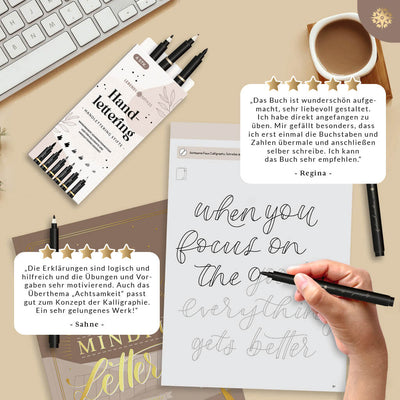 Hand
lettering
HANDLETTERING STIFTE
„Das Buch ist wunderschön aufge-
macht, sehr liebevoll gestaltet.
Ich habe direkt angefangen zu
üben. Mir gefällt besonders, dass
ich erst einmal die Buchstaben und
Zahlen übermale und anschließen
selber schreibe. Ich kann
das Buch sehr empfehlen."
- Regina -
when you
focus on
the
everything
gets better
„Die Erklärungen sind logisch und
hilfreich und die Übungen und Vor-
gaben sehr motivierend. Auch das
Überthema „Achtsamkeit" passt
gut zum Konzept der Kalligraphie.
Ein sehr gelungenes Werk!"
- Sahne -
Letter